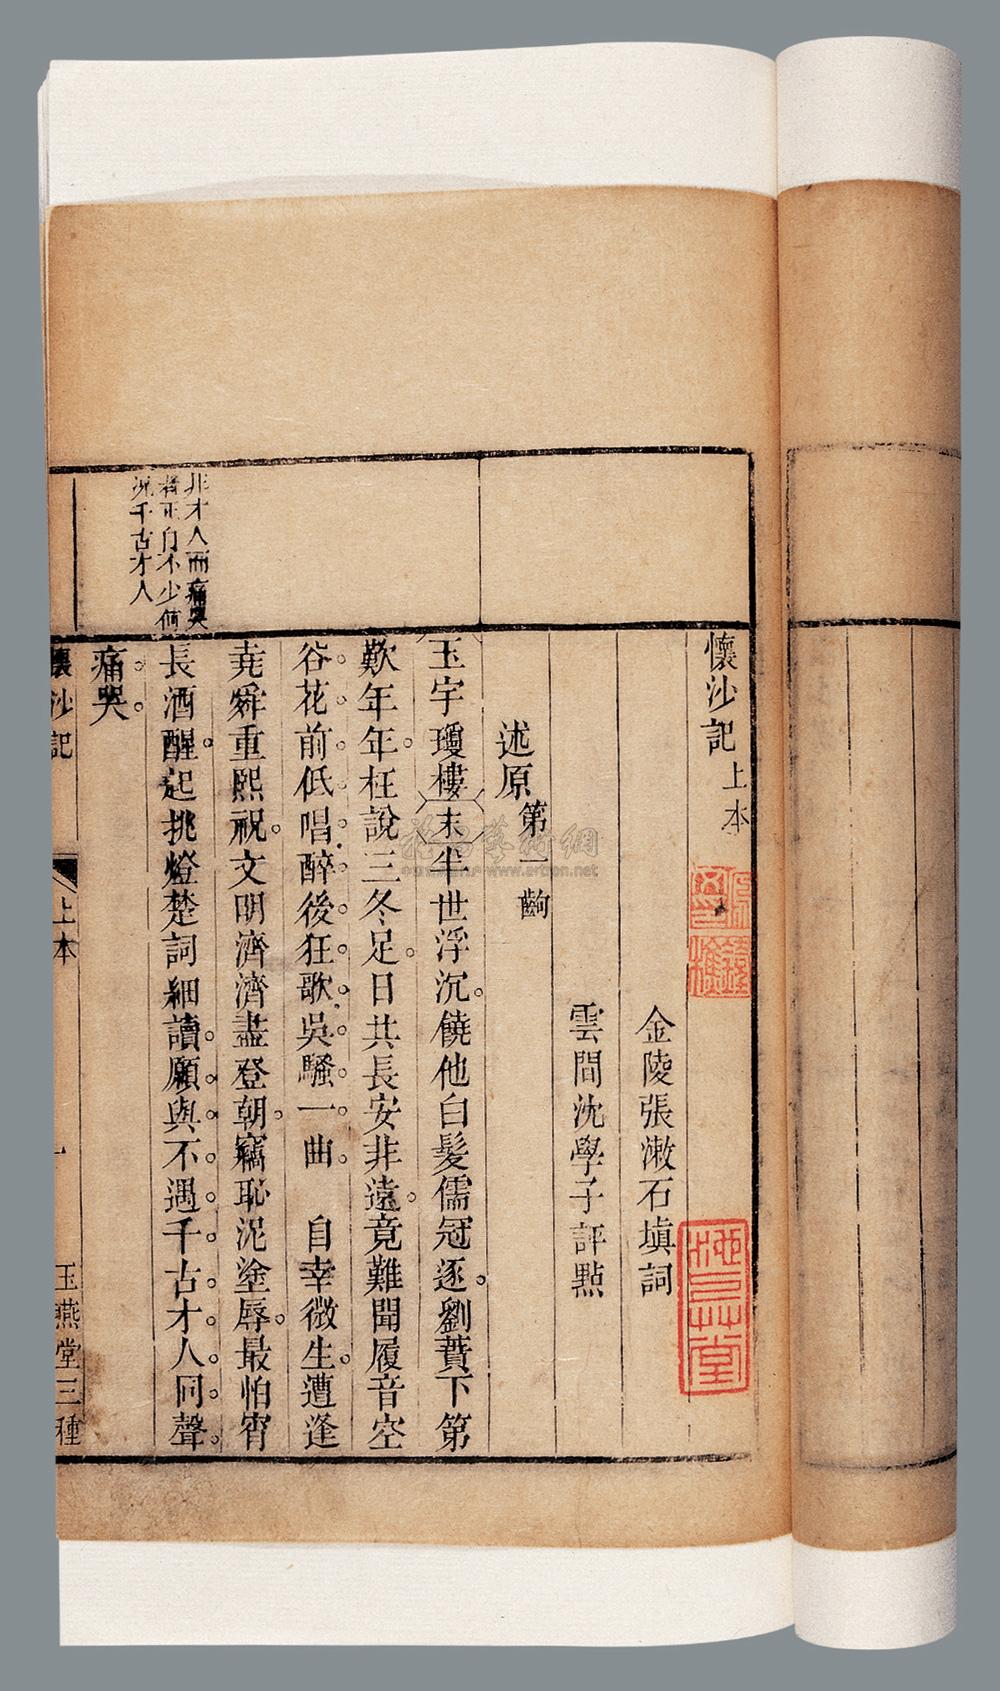 懷沙記上本
金陵張漱石塡詞
雲間沈學子評點
述原第一齣
玉宇瓊樓末半世浮沉。饒他白髮儒冠逐。劉蕡下第
歎年年。枉說三冬足。日共長安非遠。竟難聞履音空
谷。花。前。低。唱。醉。後。狂。歌。吳。騷。一。曲。自幸微生。遭逢
堯舜重熙祝。文明濟濟盡登朝。竊恥泥塗辱。最怕宵
長酒醒。起挑燈楚詞細讀。願。與。不。遇。千。古。才。人。同。聲。
痛。哭。
非才人而痛哭
者正自不少何
況千古才人
懷沙記
上本
一
玉燕堂三種
www.artron.net